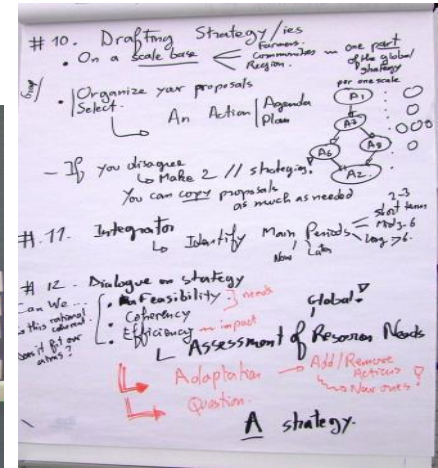 # 10. Drafting Strategy/ies
• On a scale base
Farmers.
Communities
Region.
one part
of the global
strategy
per one scale
• Organize your proposals
Select.
An Action
Agenda
Plan
A1
A7
A6
A8
A2
- If you disagree
Make 2 // strategies.
You can copy proposals
as much as needed
# 11. Integrator
Identify Main Periods
Now
Later
2-3
short term
Mid 3-6
Long > 6.
# 12. Dialogue on strategy
Can We...
is this rational
coherent
Does it fit our
aims?
• Feasibility
needs
• Coherency
• Efficiency — impact
Global!
Assessment of Resources Needs
Adaptation
Add/Remove
Actions
New ones?
Question.
A strategy.